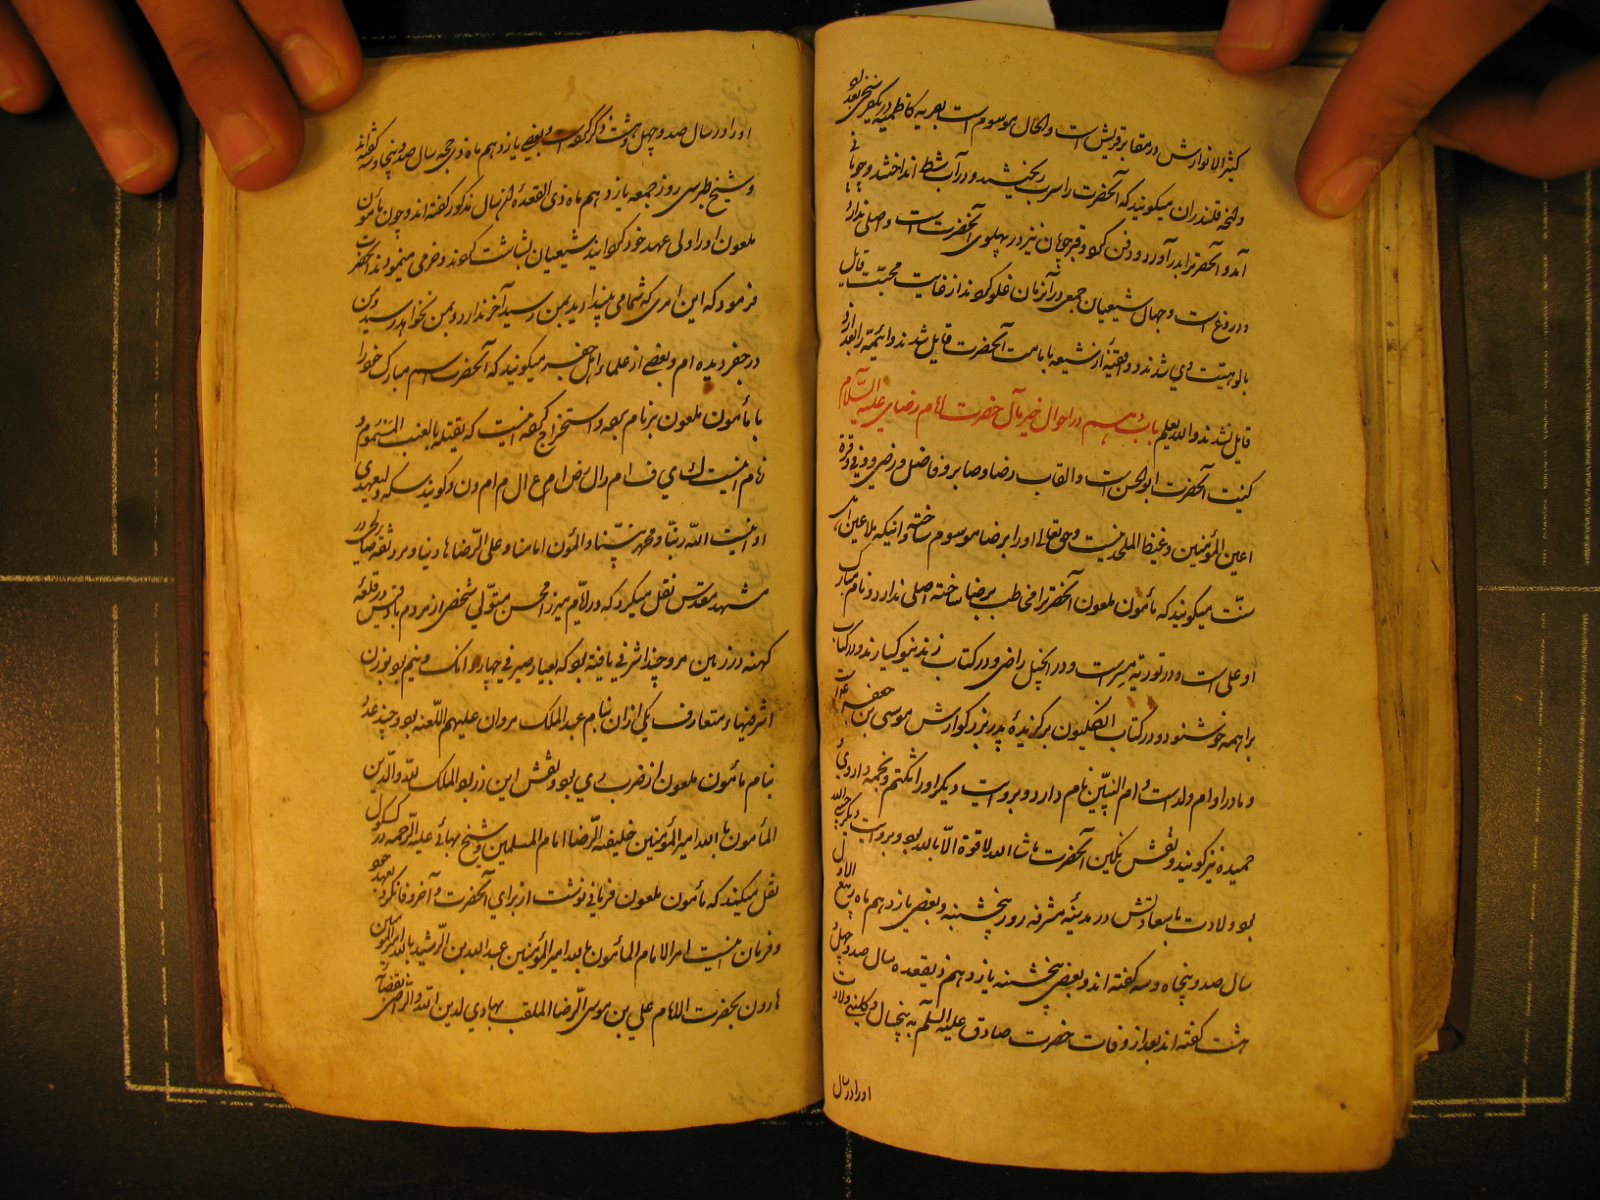 کثیر الانوارش در مقابر قریش است و الحال موسوم است بعربیه کاظمیه در یکفرسخی بغداد
و آنچه قلندران میگویند که آنحضرت را سرب ریختند و در آب شط انداختند و چوپانی
آمد و آنحضرت را بدر آورد و دفن کرد و قبر چوپان نیز در پهلوی آنحضرتست و اصلی ندارد
و دروغ است و جهال شیعیان جمعی در آنزمان غلو کردند از غایت محبت قایل
بالوهیت وی شدند و بقیهٔ از شیعه بامامت آنحضرت قایل شدند و ائمه را بعد از او
قایل نشدند و الله یعلم باب دهم در احوال خیر مآل حضرت امام رضای علیه السلام
کنیت آنحضرت ابو الحسن است و القاب رضا و صابر و فاضل و رضی و وفی و قرة
اعین المؤمنین و غیظ الملحدینست و حق تعالی او را برضا موسوم ساخته و آنیکه ملاعین اهل
سنت میگویند که مأمون ملعون آنحضرت را مخاطب برضا ساخته اصلی ندارد و نام مبارک
او علی است و در توریة میسر است و در انجیل راضی و در کتاب زند نیوکیازند و در کتاب
براهمه خوشنود و در کتاب انکلیون برگزیدهٔ پدر بزرگوارش موسی بن جعفر است
و مادر او ام ولد است و ام البنین نام دارد و بروایت دیگر او را تکتم و نجمه و اروی
حمیده نیز گویند و نقش نگین آنحضرت ما شا الله لا قوة الا بالله بود و بروایت دیگر حسبی الله
بود ولادت با سعادتش در مدینه مشرفه روز پنجشنبه و بعضی یازدهم ماه ربیع الاول
سال صد و پنجاه و سه گفته اند و بعضی پنجشنبه یازدهم ذیقعده سال صد و چهل و
هشت گفته اند بعد از وفات حضرت صادق علیه السلم به پنجسال و کلینی ولادت
او را در سال
او را در سال صد و چهل و هشت ذکر کرده است و بعضی یازدهم ماه ذی حجه سال صد و پنجاه و سه گفته اند
و شیخ طبرسی روز جمعه یازدهم ماه ذی القعده از سال مذکور گفته اند و چون مأمون
ملعون او را ولی عهد خود کردانید شیعیان بشاشت کردند و خرمی مینمودند آنحضرت
فرمود که این امری که شما می پندارید بمن رسید آخر ندارد و بمن نخواهد رسید و من
در جفر دیده ام و بعضی از علماء اهل جفر میگویند که آنحضرت اسم مبارک خود را
با مأمون ملعون بر نام بوجه و استخراج کرده اینست که یقتله بالعنب المسموم و
نام اینست ک ی ف ا م د ال رض ا م ع ال م ام ون و گویند سکه ولیعهدی
او اینست الله ربنا و محمد نبینا و المؤن امامنا و علی الرضا هادینا و مرد ثقه صالحی در
مشهد مقدس نقل میکرد که در ایام میرزا محسن متولی شخصی از مردم بافق در قلعهٔ
کهنه در زمین مرو چند اشرفی یافته بود که بعیار صیرفی چهار دانک و نیم بود بوزن
اشرفیهاء متعارف یکی از آن بنام عبد الملک مروان علیهم اللعنه بود و چند عدد
بنام مأمون ملعون از ضرب ری بود و نقش این زر بود الملک لله و الدین
المأمون بالله امیر المؤمنین خلیفته الرضا امام المسلمین و شیخ بهائی علیه الرحمه در کشکول
نقل میکند که مأمون ملعون فرمانی نوشت از برای آنحضرت و آخر وفا نکرد بعهد خود
و فرمان اینست امر الامام المأمون بالله امیر المؤمنین عبد الله بن الرشید بالله امیر المؤمنین
هارون بحضرت الامام علی بن موسی الرضا الملقب بهادی لدین الله و الراضی بقضاء